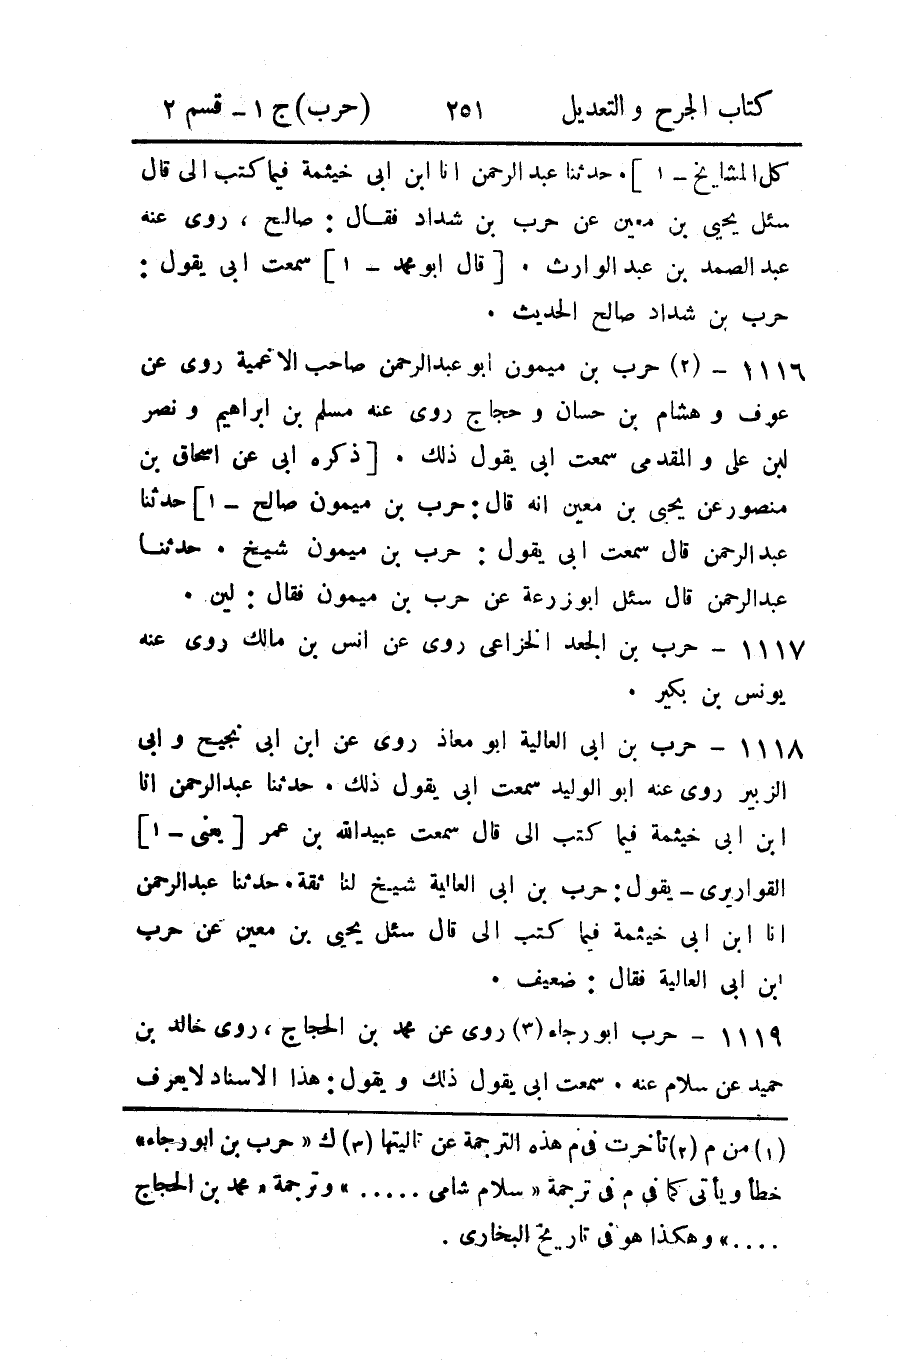 كتاب الجرح و التعديل ٢٥١ (حرب) ج ١ - قسم ٢
كل المشايخ - ١ ] . حدثنا عبد الرحمن انا ابن ابى خيثمة فيما كتب الى قال
سئل يحيى بن معين عن حرب بن شداد فقال : صالح ، روى عنه
عبد الصمد بن عبد الوارث . [ قال ابو محمد - ١ ] سمعت ابى يقول :
حرب بن شداد صالح الحديث .
١١١٦ - (٢) حرب بن ميمون ابو عبد الرحمن صاحب الاغمية روى عن
عوف و هشام بن حسان و حجاج روى عنه مسلم بن ابراهيم و نصر
ابن على و المقدمى سمعت ابى يقول ذلك . [ ذكره ابى عن اسحاق بن
منصور عن يحيى بن معين انه قال : حرب بن ميمون صالح - ١ ] حدثنا
عبد الرحمن قال سمعت ابى يقول : حرب بن ميمون شيخ . حدثنا
عبد الرحمن قال سئل ابو زرعة عن حرب بن ميمون فقال : لين .
١١١٧ - حرب بن الجعد الخزاعى روى عن انس بن مالك روى عنه
يونس بن بكير .
١١١٨ - حرب بن ابى العالية ابو معاذ روى عن ابن ابى نجيح و ابى
الزبير روى عنه ابو الوليد سمعت ابى يقول ذلك . حدثنا عبد الرحمن انا
ابن ابى خيثمة فيما كتب الى قال سمعت عبيد الله بن عمر [ يعنى - ١ ]
القواريرى - يقول : حرب بن ابى العالية شيخ لنا ثقة . حدثنا عبد الرحمن
انا ابن ابى خيثمة فيما كتب الى قال سئل يحيى بن معين عن حرب
ابن ابى العالية فقال : ضعيف .
١١١٩ - حرب ابو رجاء (٣) روى عن محمد بن الحجاج ، روى خالد بن
حميد عن سلام عنه . سمعت ابى يقول ذلك و يقول : هذا الاسناد لا يعرف
(١) من م (٢) تأخرت فى م هذه الترجمة عن تاليتها (٣) ك « حرب بن ابو رجاء»
خطأ و يأتى كما فى م فى ترجمة « سلام شامى ..... » و ترجمة « محمد بن الحجاج
....» و هكذا هو فى تاريخ البخارى .